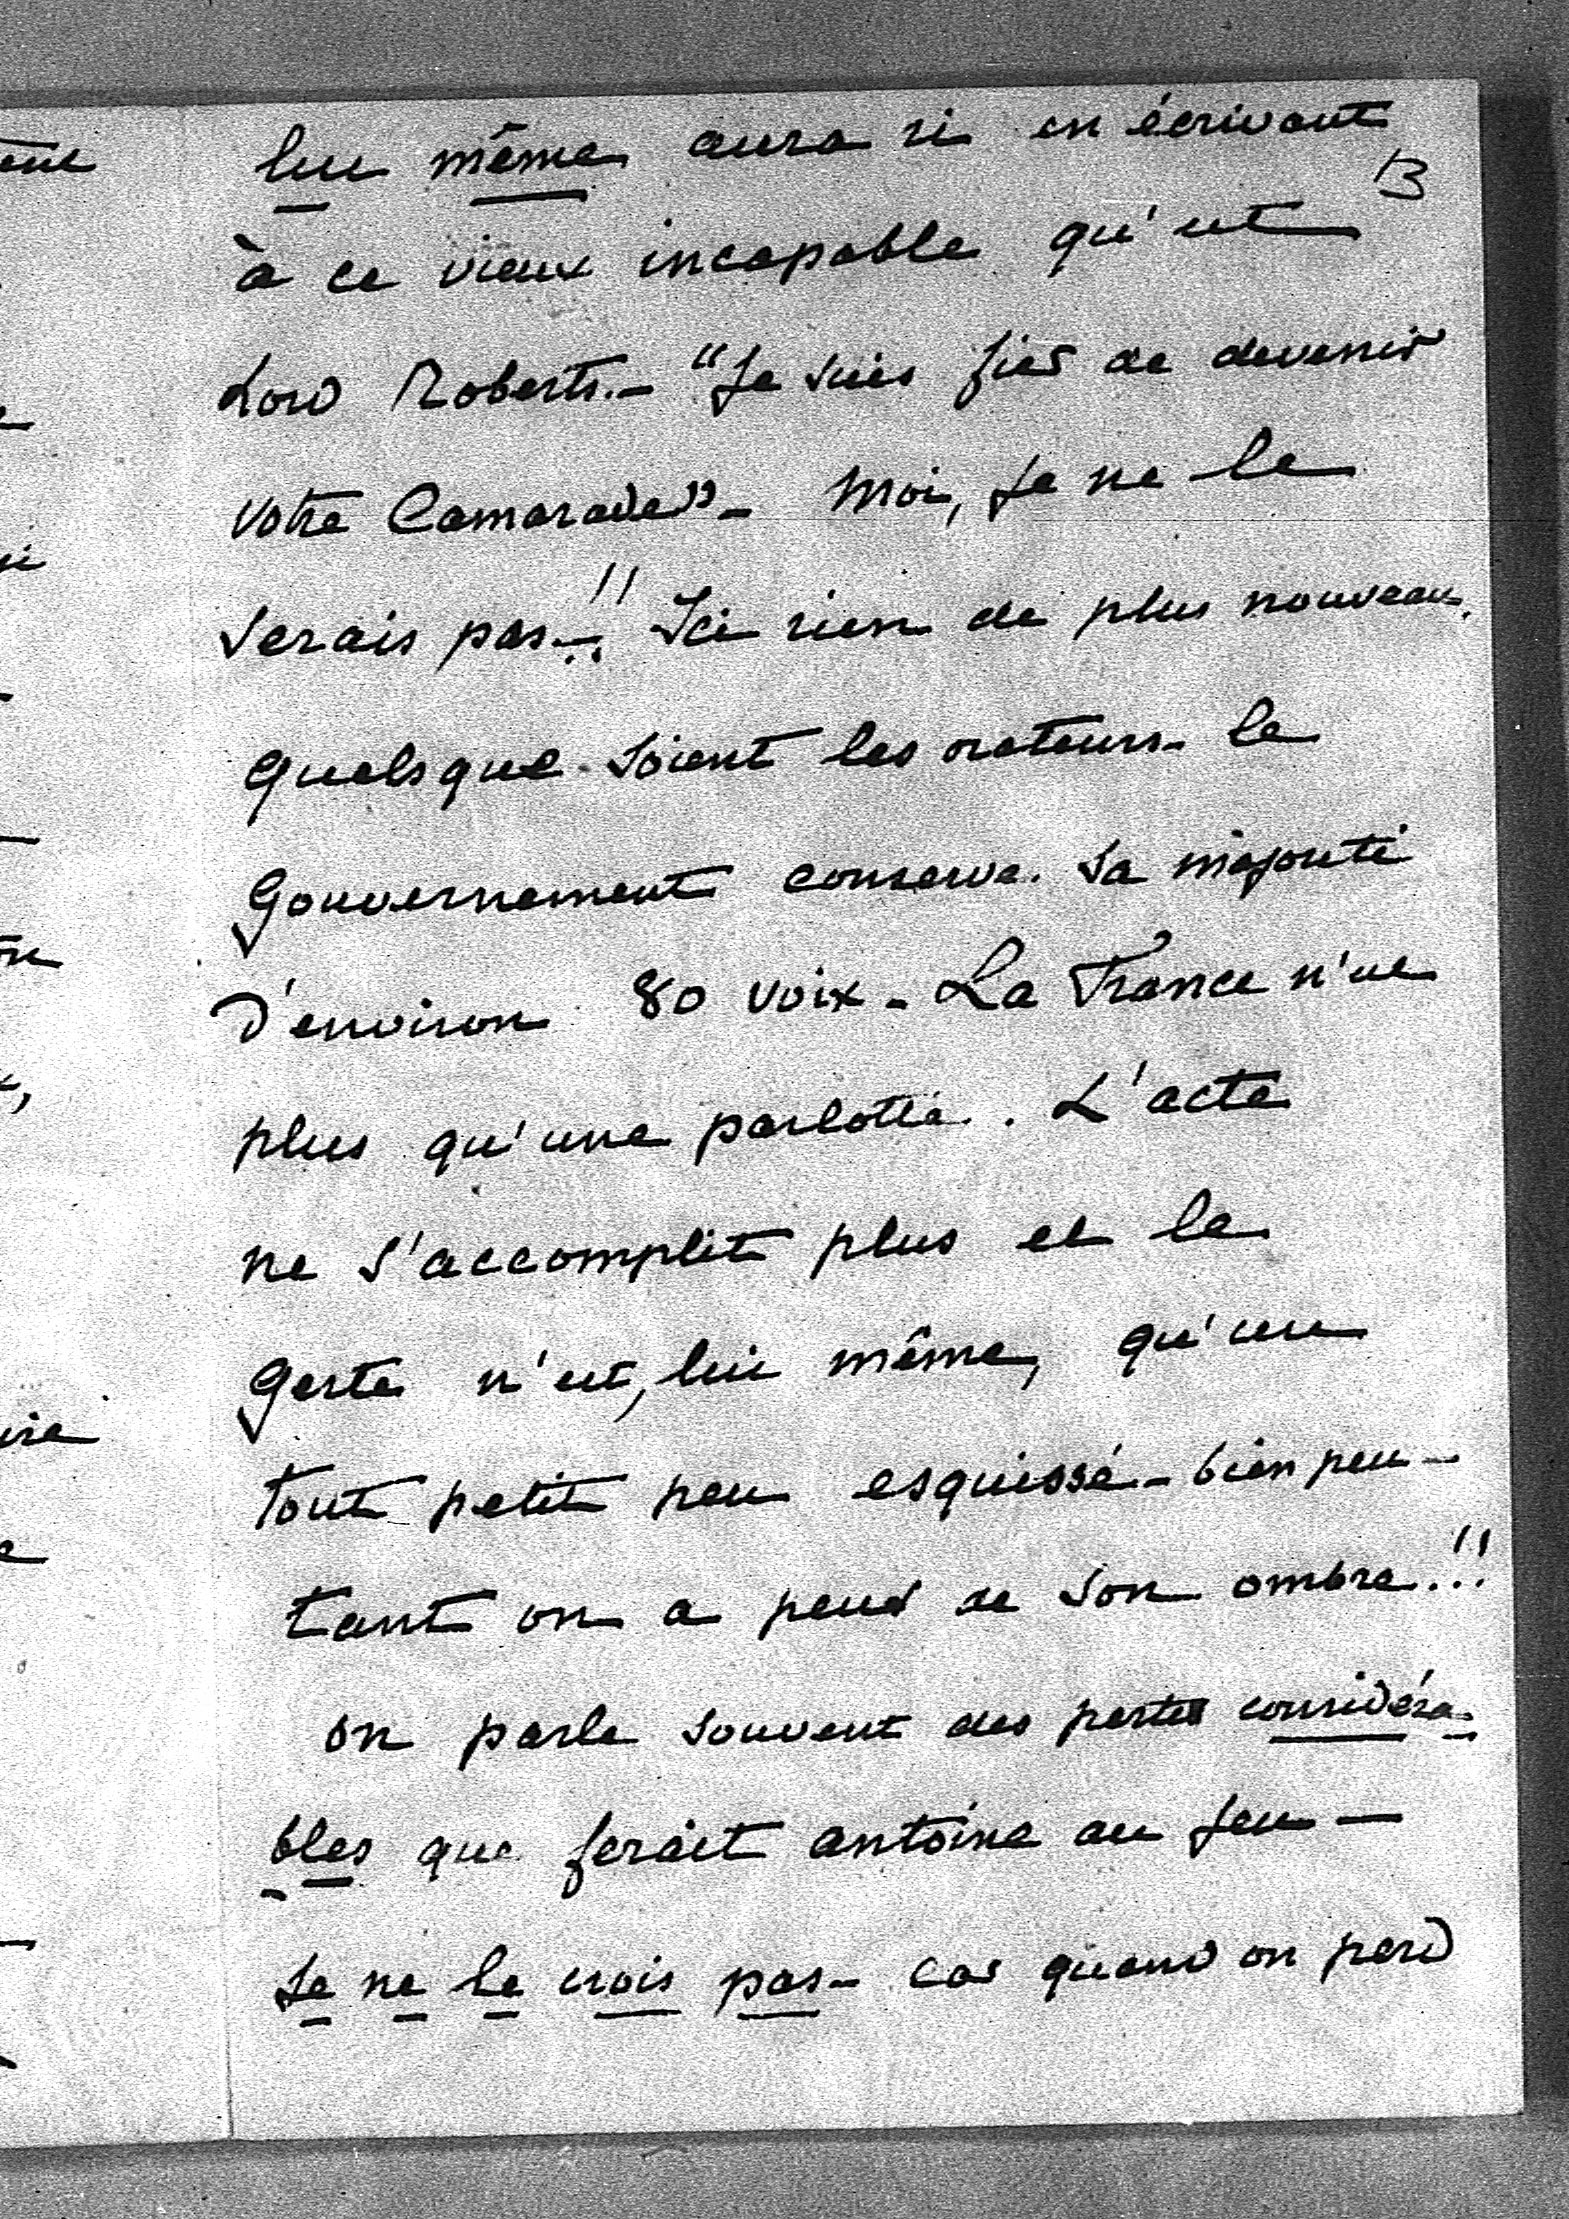 lui même aura ri en écrivant
13
à ce vieux incapable qu'est
Lord Roberts.- "Je suis fier de devenir
votre Camarade"- Moi, je ne le
serais pas-!! Ici rien de plus nouveau.
quelsque soient les orateurs- le
Gouvernement conserve sa majorité
d'environ 80 voix- La France n'est
plus qu'une parlotte. L'acte
ne s'accomplit plus et le
geste n'est, lui même, qu'un
tout petit peu esquissé- bien peu-
tant on a peur de son ombre!!!
on parle souvent des pertes considéra-
bles que ferait antoine au jeu-
Je ne le crois pas- car quand on perd